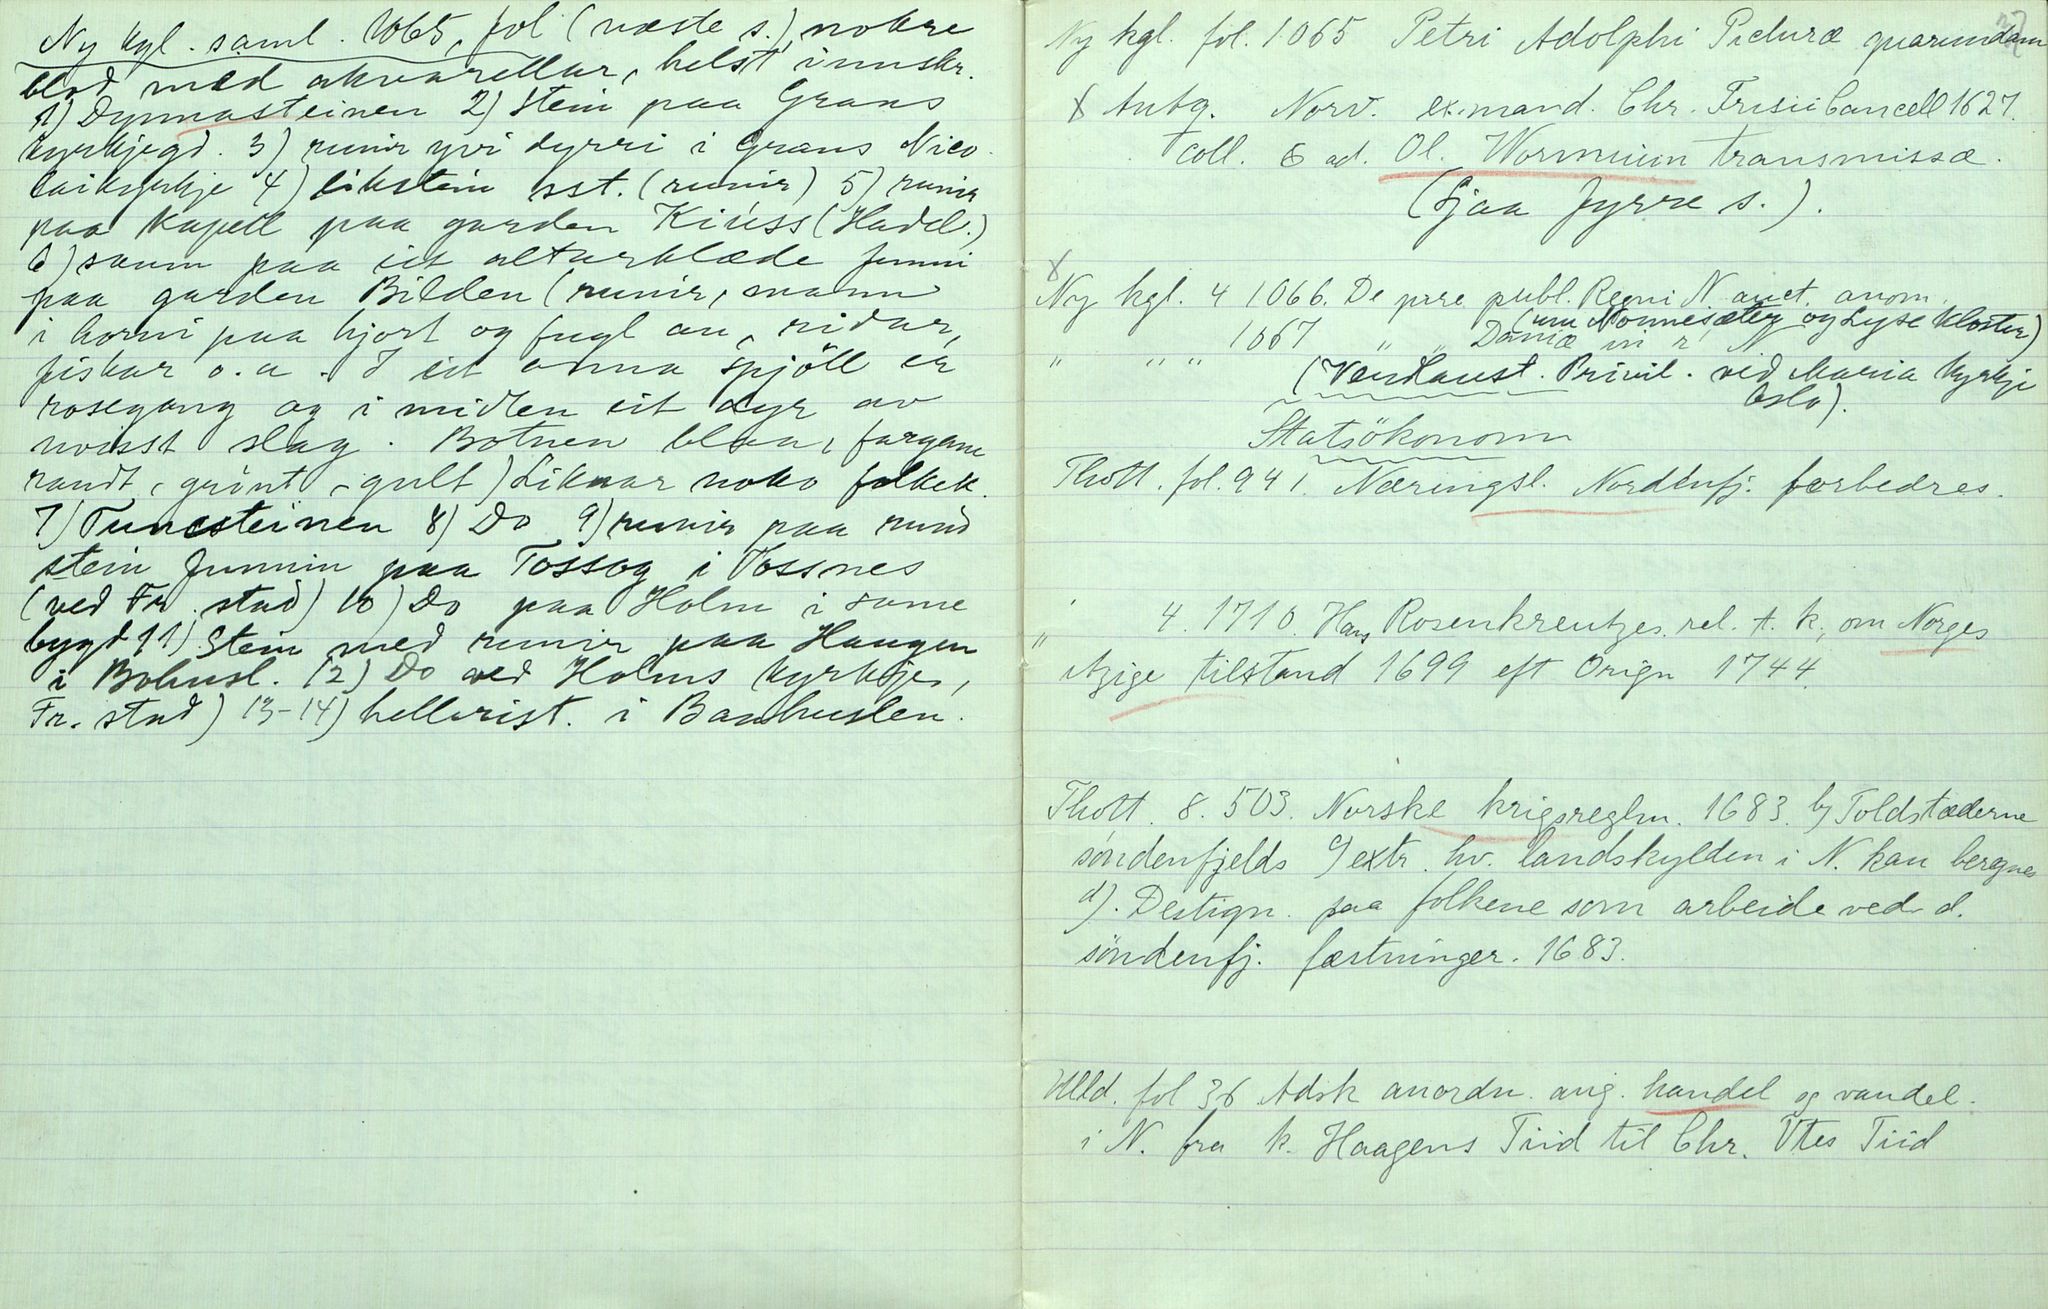 Ny kgl. saml. 1065, fol (næste s.) nokre
blod med akvarellur, helst innskr.
1) Dynnasteinen 2) Stein paa Grans
kyrkjegd. 3) runir yvi dyrri i Grans Nico-
laikyrkje 4) likstein sst. (runir) 5) runir
paa Kapell paa garden Kiúss (Hadel.)
6) saum paa eit alturklæde funni
paa garden Bilden (runir, mann
i horni paa hjort og fugl an, ridar,
fiskar o.a. I eit anna spjöll er
rosegang og i midten eit dyr av
uvisst slag. Botnen blaa, fargane
raudt, grönt, gult) Liknar noko folkek.
7) Tunesteinen 8) Do 9) runir paa rund
stein funnin paa Tossog i Vossnes
(ved Fr. stad) 10) Do paa Holm i same
bygd 11) Stein med runir paa Haugen
i Bohusl. 12) Do ved Holms kyrkje,
Fr. stad) 13-14) hellerist. i Baahuslen.
Ny kgl. fol. 1065 Petri Adolphi Picturæ quarundam
x Antq. Norv. ex. mand. Chr. Frisii Cancell 1627.
coll. & ad. Ol. Wormium transmissæ.
(Sjaa fyrre s.).
x
Ny kgl. 4 1066. De jure publ. Regni N. auct. anom.
(um Nonnesæter og Lyse Kloster)
" " " 1067 " " Daniæ in r N
(Vendaust. Privil. ved Maria Kyrkje
Oslo).
Statsökonomi
Thott. fol. 941. Næringsl. Nordenfj. forbedres.
" 4. 1710. Hans Rosenkreutzes. rel. t. k., om Norges
itzige tilstand 1699 eft Orign 1744.
Thott. 8. 503. Norske krigsreglm. 1683. b) Toldstæderne
søndenfjelds c) extr. hv. landskylden i N. kan beregnes
d). Destign. paa folkene som arbeide ved d.
søndenfj. fæstninger. 1683.
Ulld. fol 36 Adsk anordn. ang. handel og vandel.
i N. fra k. Haagens Tiid til Chr. Vtes Tiid